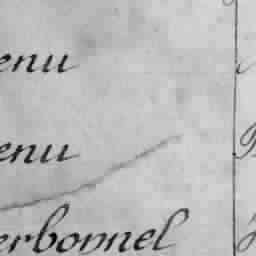 enu
enu
erbonnel